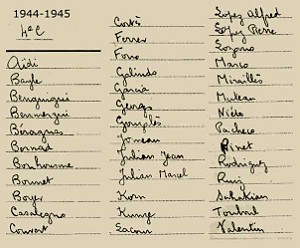 1944-1945
4e C
Aidi
Bayle
Benguigui
Benmergui
Béragnas
Bernad
Bonhomme
Bonnet
Boyer
Casalegno
Couvert
Cortès
Ferrer
Fons
Galindo
Garcia
Georges
Gonzalès
Juneau
Julian Jean
Julian Marcel
Korn
Kunze
Lacour
Lopez Alfred
Lopez Pierre
Lozano
Marco
Mirallès
Muteau
Niéto
Pacheco
Pinet
Rodriguez
Ruiz
Sahakian
Toubal
Valentin